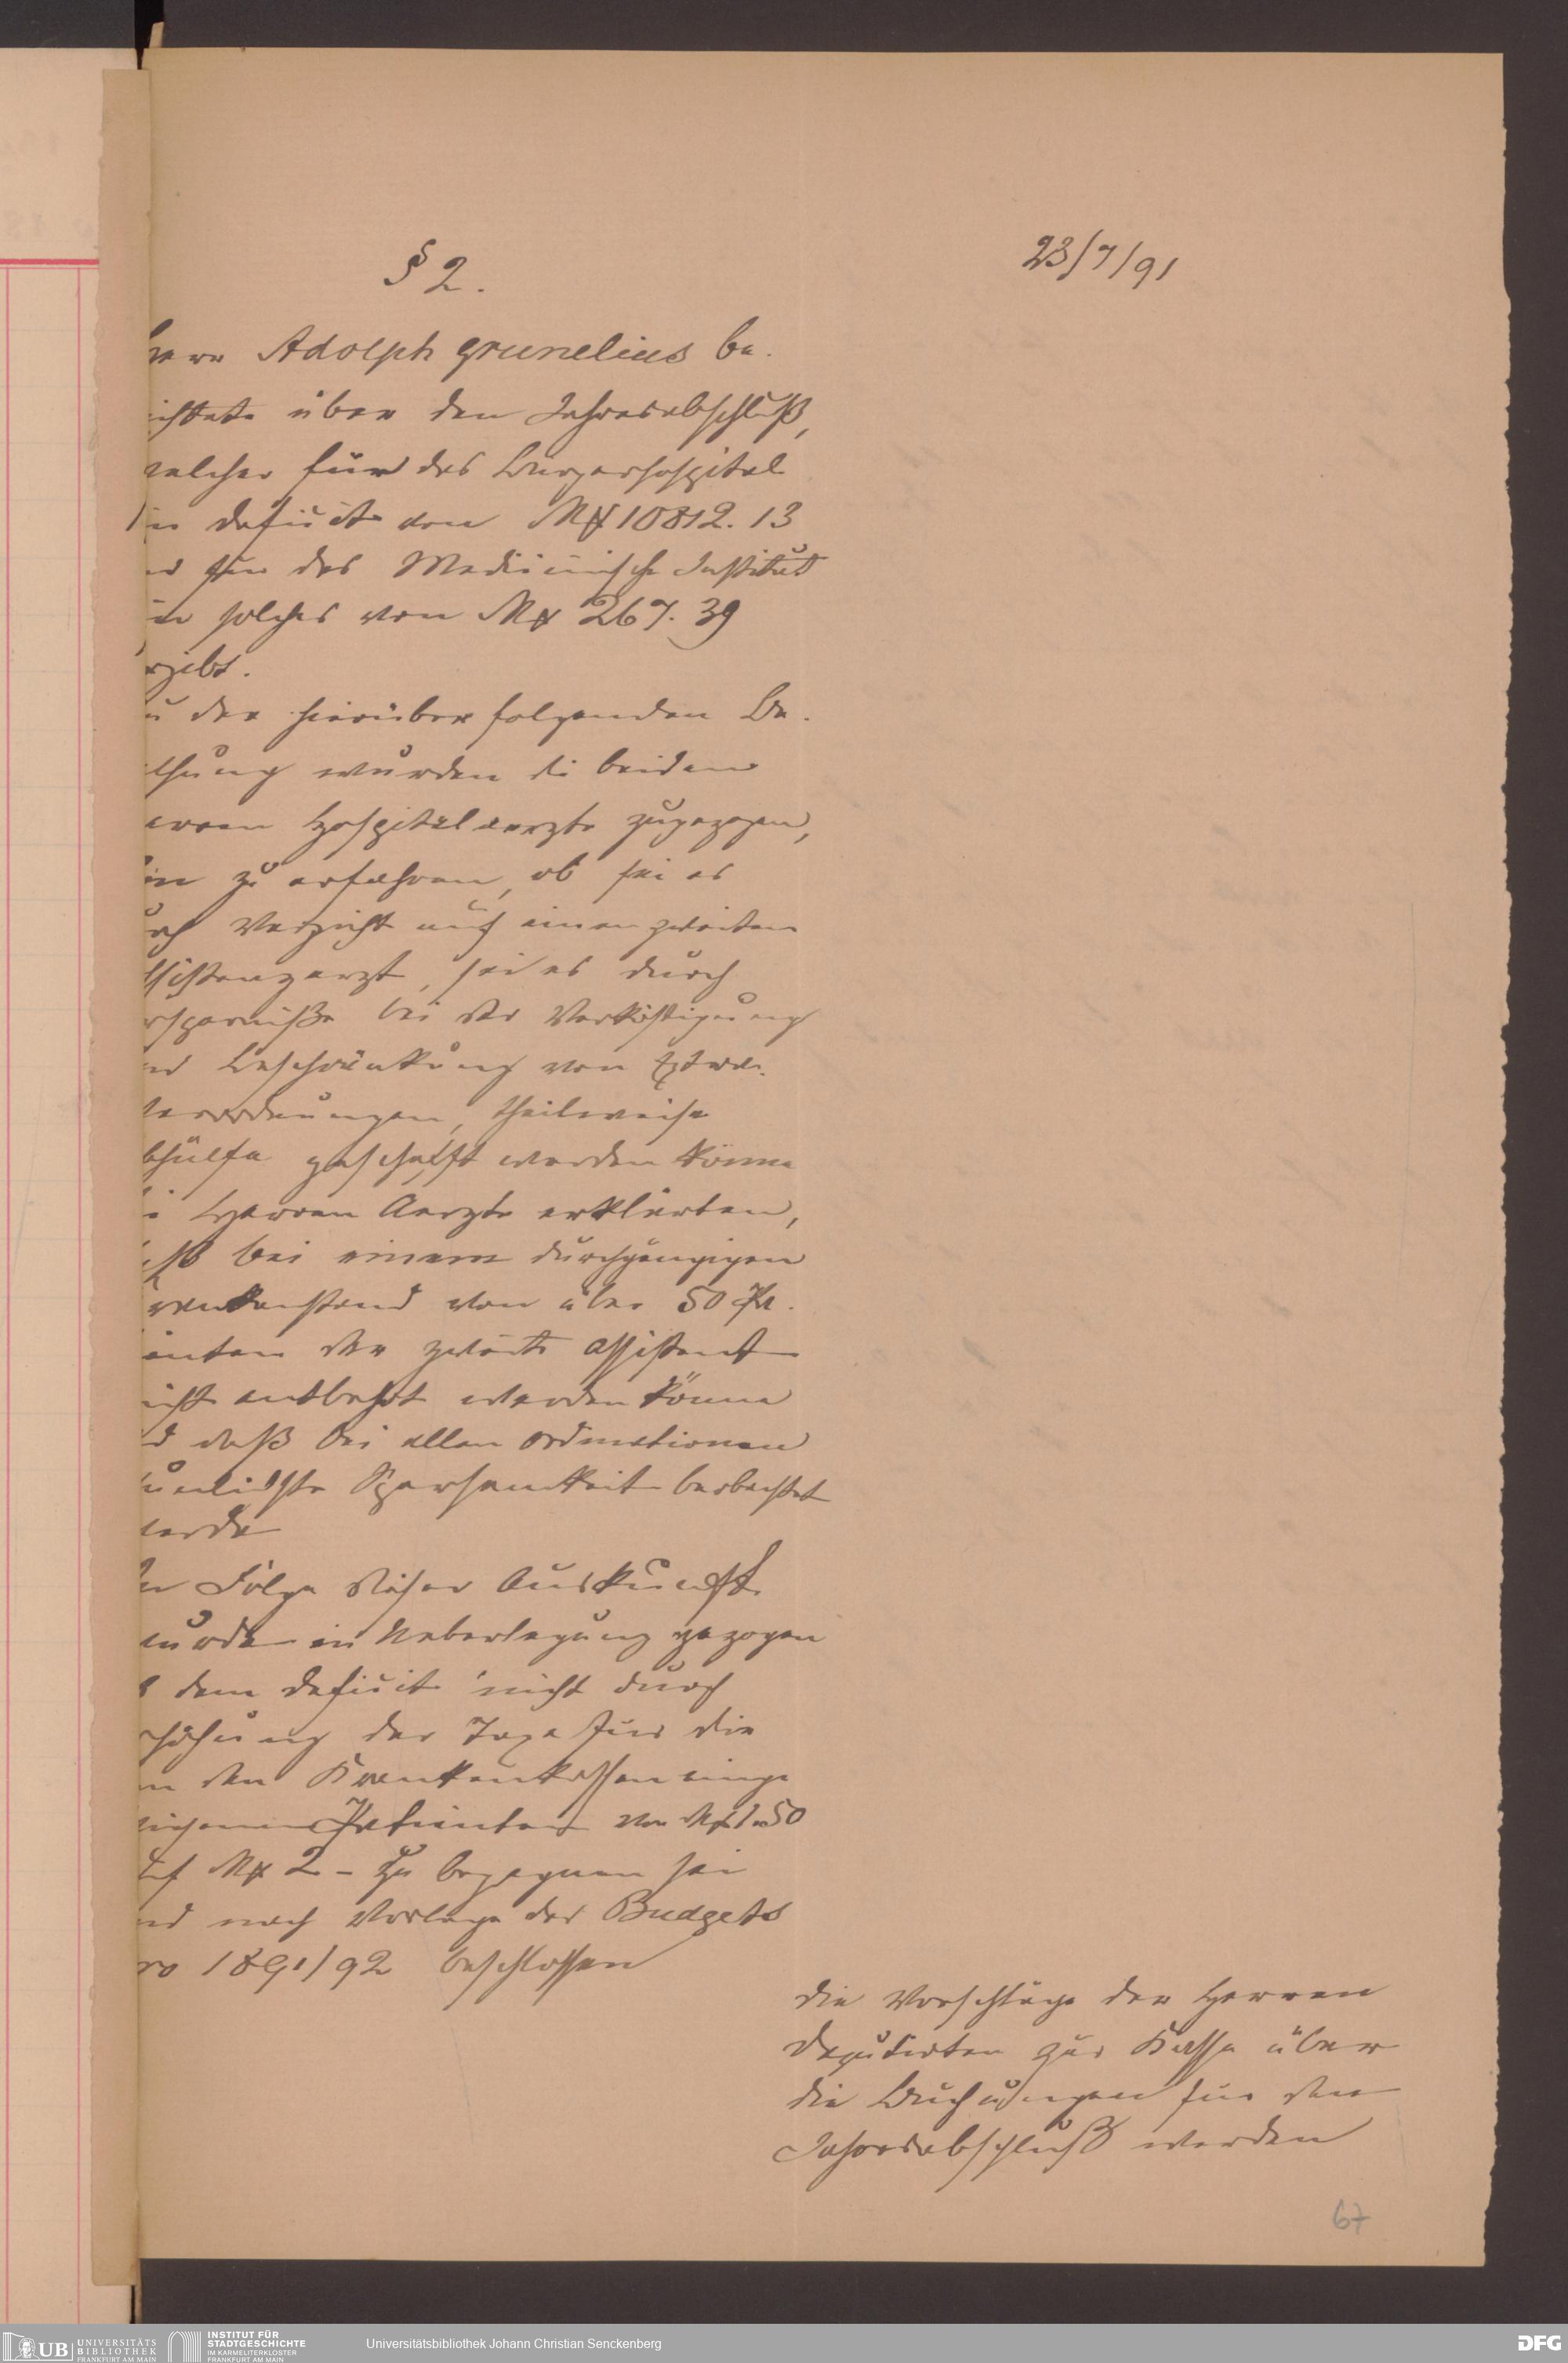 23/7/91
§ 2.
Herr Adolph Grunelius be-
ichtete über den Jahresabschluß,
welcher für das Bürgerhospital
ein Deficit von Mk 10812.13
nd für das Medicinische Institut
ein solches von Mk 267.39
rgibt.
u der hierüber folgenden Be-
thung wurden die beiden
erren Hospitalaerzte zugezogen,
um zu erfahren, ob sei es
urch Verzicht auf einen zweiten
ssistenzarzt, sei es durch
rsparniße bei der Verköstigung
nd Beschränkung von Extra-
verordnungen, theilweise
bhülfe geschafft werden könne
ie Herren Aerzte erklärten,
aß bei einem durchgängigen
rankenstand von über 50 Pa-
ienten der zweite Assistent
icht entbehrt werden könne
d daß bei allen Ordinationen
unlichste Sparsamkeit beobachtet
werde
In Folge dieser Auskunft
wurde in Ueberlegung gezogen
b dem Deficit nicht durch
rhöhung der Taxe für die
on den Krankenkassen einge
wiesenen Patienten von Mk 1.50
auf Mk 2 – zu begegnen sei
nd nach Vorlage des Budgets
ro 1891/92 beschlossen
die Vorschläge der Herren
Deputirten zur Kasse über
die Buchungen für den
Jahresabschluß werden
67
UB UNIVERSITÄTS BIBLIOTHEK FRANKFURT AM MAIN
INSTITUT FÜR STADTGESCHICHTE IM KARMELITERKLOSTER FRANKFURT AM MAIN
Universitätsbibliothek Johann Christian Senckenberg
DFG